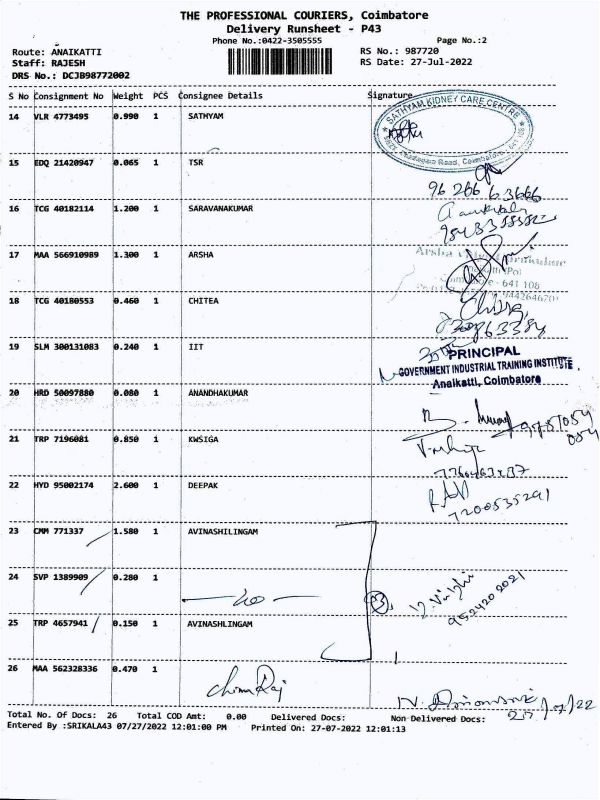 THE PROFESSIONAL COURIERS, Coimbatore
Delivery Runsheet - P43
Phone No.:0422-3505555 Page No.:2
Route: ANAIKATTI RS No.: 987720
Staff: RAJESH RS Date: 27-Jul-2022
DRS No.: DCJB98772002
S No Consignment No Weight PCS Consignee Details Signature
14 VLR 4773495 0.990 1 SATHYAM
SATHYAM KIDNEY CARE CENTRE
Road, Coimbatore
15 EDQ 21420947 0.065 1 TSR
96 266 63666
16 TCG 40182114 1.200 1 SARAVANAKUMAR
17 MAA 566910989 1.300 1 ARSHA
Arsha
641 108
18 TCG 40180553 0.460 1 CHITEA
19 SLM 300131083 0.240 1 IIT
PRINCIPAL
GOVERNMENT INDUSTRIAL TRAINING INSTITUTE,
Anaikatti, Coimbatore
20 HRD 50097880 0.080 1 ANANDHAKUMAR
21 TRP 7196081 0.850 1 KWSIGA
22 HYD 95002174 2.600 1 DEEPAK
7200535291
23 CMM 771337 1.580 1 AVINASHILINGAM
24 SVP 1389909 0.280 1
9524202021
25 TRP 4657941 0.150 1 AVINASHLINGAM
26 MAA 562328336 0.470 1
Total No. Of Docs: 26 Total COD Amt: 0.00 Delivered Docs: Non Delivered Docs:
Entered By :SRIKALA43 07/27/2022 12:01:00 PM Printed On: 27-07-2022 12:01:13